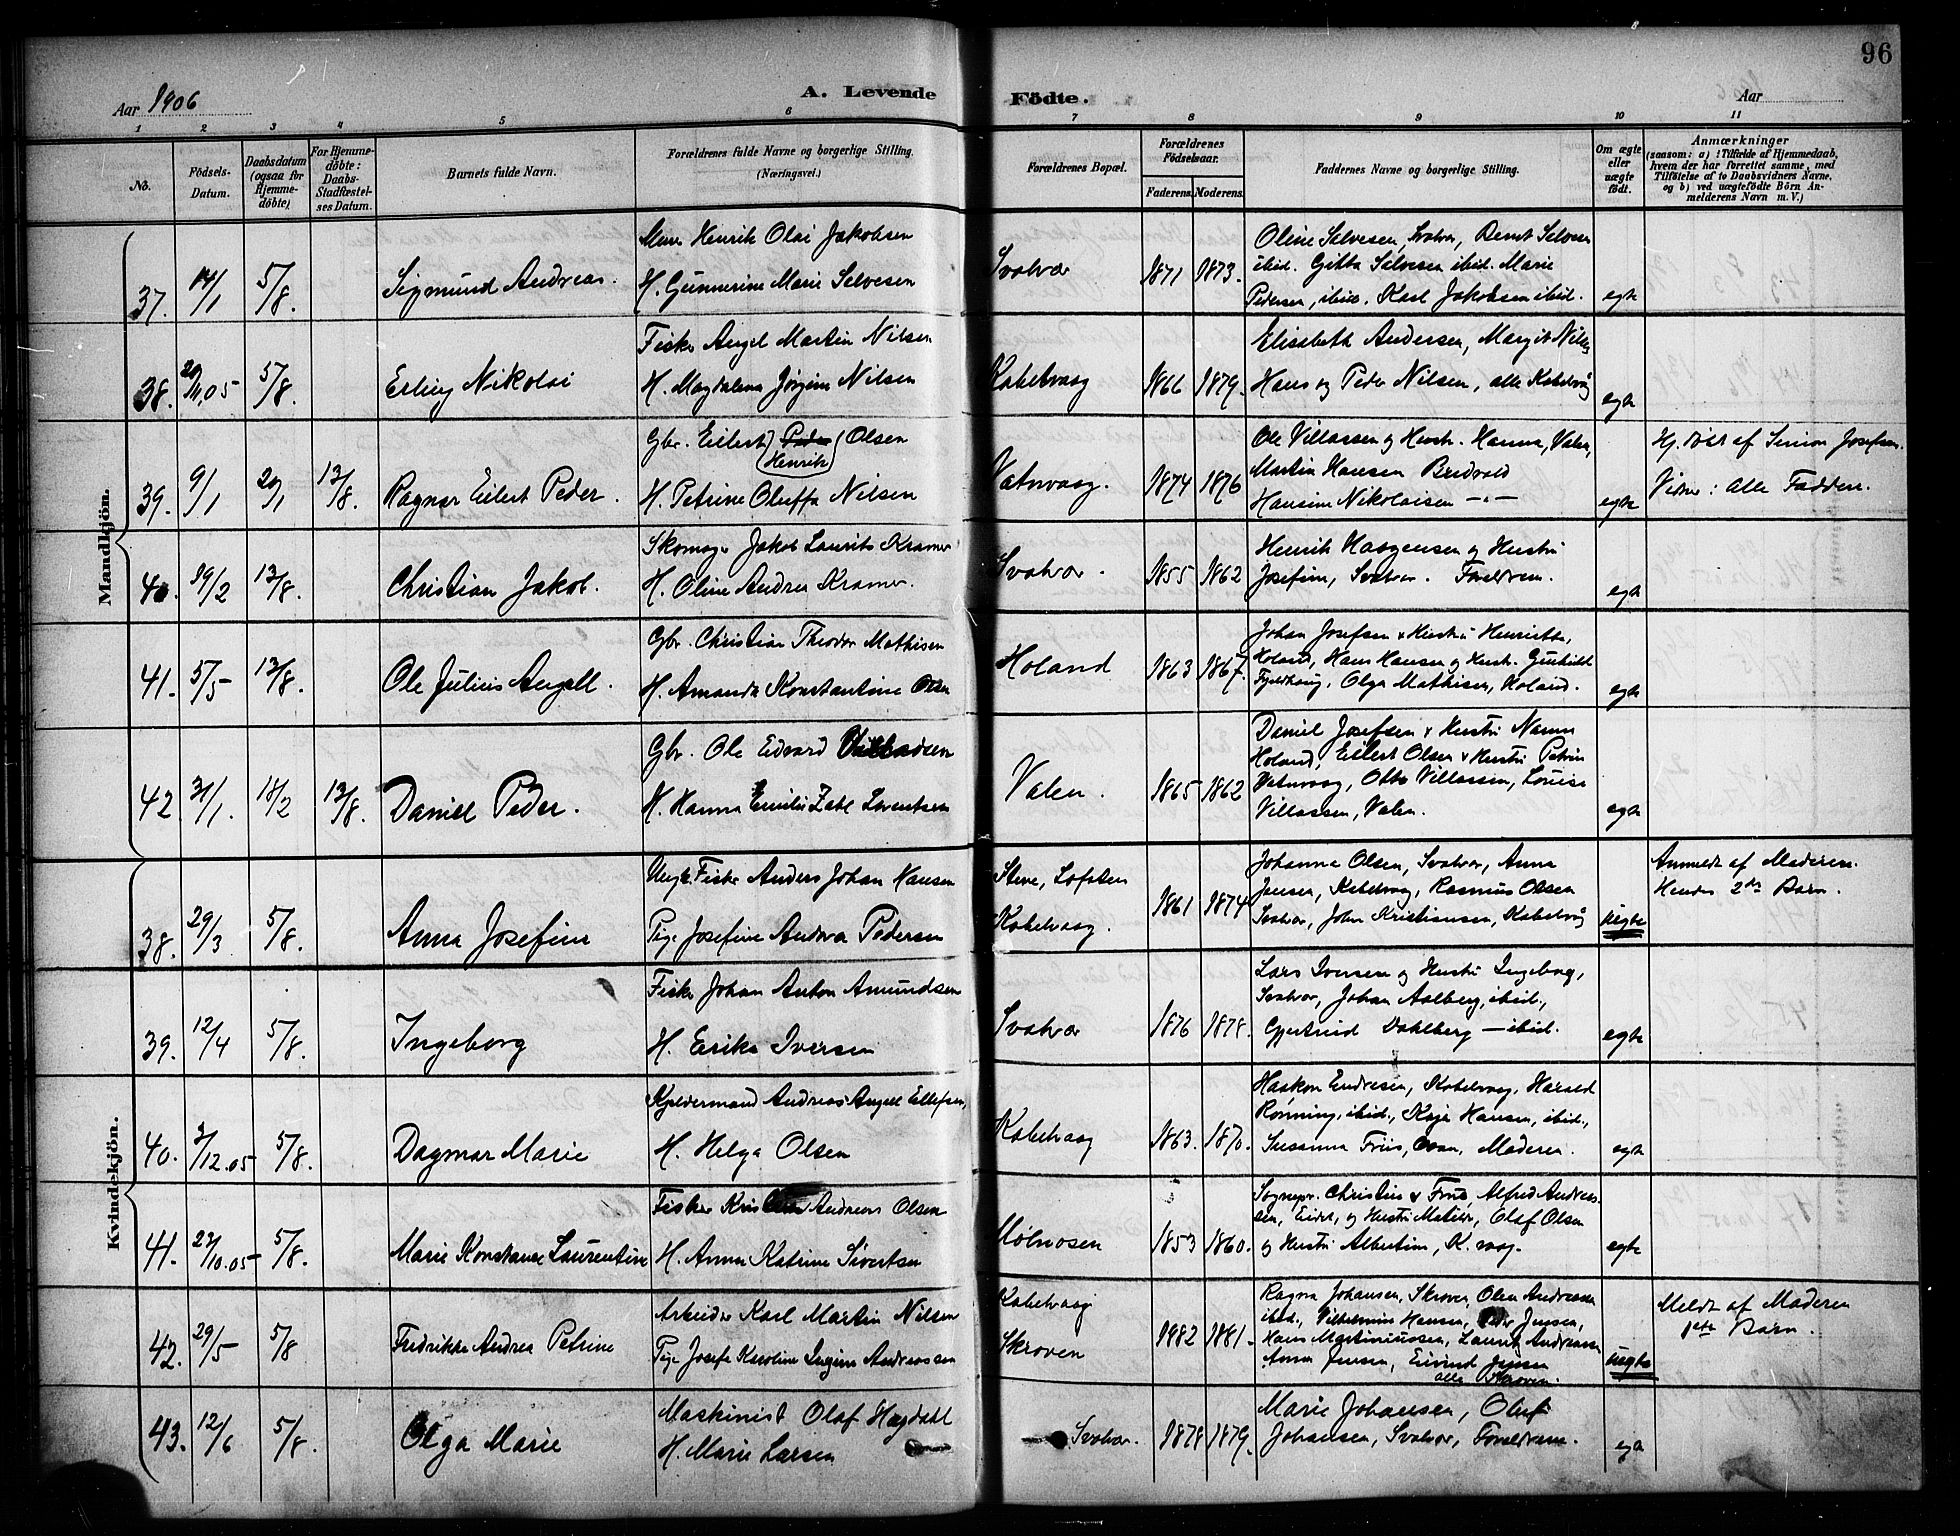 96
Aar 1906
A. Levende
Födte.
Aar
1 2 3 4 5 6 7 8 9 10 11
No.
Födsels-
Datum.
Daabsdatum
(ogsaa for
Hjemme-
döbte)
For Hjemme-
döbte:
Daabs-
Stadfæstel-
ses Datum.
Barnets fulde Navn.
Forældrenes fulde Navne og borgerlige Stilling.
(Næringsvei.)
Forældrenes Bopæl.
Forældrenes
Födselsaar.
Faderens. Moderens.
Faddernes Navne og borgerlige Stilling.
Om ægte
eller
uægte
födt.
Anmærkninger
(saasom: a) i Tilfælde af Hjemmedaab,
hvem der har forrettet samme, med
Tilföielse af to Daabsvidners Navne,
og b) ved uægtefödte Börn An-
melderens Navn m. V.)
Mandkjön.
37. 14/1 5/8. Sigmund Andreas.
Henrik Olai Jakobsen
H. Gunnerine Marie Selvesen
Svolvær 1871 1873.
Oline Selvesen, Svolvær, Bernt Selvesen
ibid. Gitta Selvesen ibid. Marie
Pedersen, ibid. Karl Jakobsen ibid.
egte
38. 20/11.05 5/8. Erling Nikolai
Fisker Angel Martin Nilsen
H. Magdalena Jørgine Nilsen
Kabelvaag 1866 1879.
Elisabeth Andersen, Margit Nilsen
Hans og Peder Nilsen, alle Kabelvåg
egte
39. 9/1 20/1 12/8. Ragnar Eilert Peder.
Gbr. Eilert (Henrik) Olsen
H. Petrine Oluffa Nilsen
Vatnvaag. 1874 1876
Ole Villassen og Hustr. Hanna, Valen,
Martin Hansen Bredvold
Hansine Nikolaisen -"-
egte
Hj. døbt af Simon Josefsen.
Vidner: alle Faddere.
40. 19/2 12/8. Christian Jakob.
Skomager Jakob Laurits Kramer
H. Oline Andrea Kramer.
Svolvær. 1855 1862
Henrik Haagensen og Hustru
Josefine, Svolvær. Forældrene.
egte
41. 5/5 12/8. Ole Julius Angell.
Gbr. Christian Theodor Mathisen
H. Amanda Konstantine Olsen
Holand 1863 1867.
Johan Josefsen & Hustru Henrietta,
Holand, Hans Hansen og Hustr. Gunhild
Olga Mathisen, Holand.
egte
42 31/1. 18/2 12/8. Daniel Peder.
Gbr. Ole Edvard
H. Hanna Emilie Zahl Lorentsen
Valen. 1865 1862
Daniel Josefsen & Hustru Nanna
Holand, Eilert Olsen & Hustru Petrine
Vatnvaag, Otto Villassen, Louise
Villassen, Valen.
egte
Kvindekjön.
38. 29/3 5/8. Anna Josefine
Ungk. Fisker Anders Johan Hansen
Pige Josefine Andrea Pedersen
Steve, Lofoten
Kabelvaag. 1861 1874
Johanna Olsen, Svolvær, Anna
Jensen, Kabelvaag, Rasmus Olsen
Svolvær, John Kristiansen, Kabelvåg
uegte
Anmeldt af Moderen.
Hendes 2det Barn.
39. 12/4 5/8. Ingeborg
Fisker Johan Anton Amundsen
H. Erika Iversen
Svolvær 1876 1878.
Lars Iversen og Hustru Ingeborg,
Svolvær, Johan Aalberg, ibid.,
Gjertrud Dahlberg — ibid.
egte
40. /12.05 5/8. Dagmar Marie
Kjeldermand Andreas Angell Ellefsen,
H. Helga Olsen
Kabelvaag 1863. 1870.
Haakon Endresen, Kabelvaag, Harald
Rønning, ibid., Kaja Hansen, ibid.,
Susanna Friis, Moderen.
egte
41. /10.05 5/8. Marie Konstanse Laurentine
Fisker Andreas Olsen
H. Anna Katrine Sivertsen
Mølnosen 1853 1860.
Sognepr. Christie & Frue, Alfred Andreas-
sen, Eidet, og Hustru Matilde, Olaf Olsen
og Hustru Albertine, K. vaag.
egte
42. 29/5 5/8 Fredrikke Andrea Petrine
Arbeider Karl Martin Nilsen
Pige Josefa Karoline Ingine Andreassen
Kabelvaag
Skroven 1882 1881.
Ragna Johansen, Skroven, Andreassen
ibid., Vilhelmine Hansen, Peder Jensen,
Hans Martinussen, Laurits Andreassen
Anna Jensen, Eivind Jensen
alle Skroven.
uegte
Meldt af Moderen
1ste Barn.
43. 12/6 5/8. Olga Marie
Maskinist Olaf Hagdahl
H. Marie Larsen
Svolvær. 1878 1879.
Marie Johansen, Oluf
Johansen, Svolvær, Forældrene.
egte